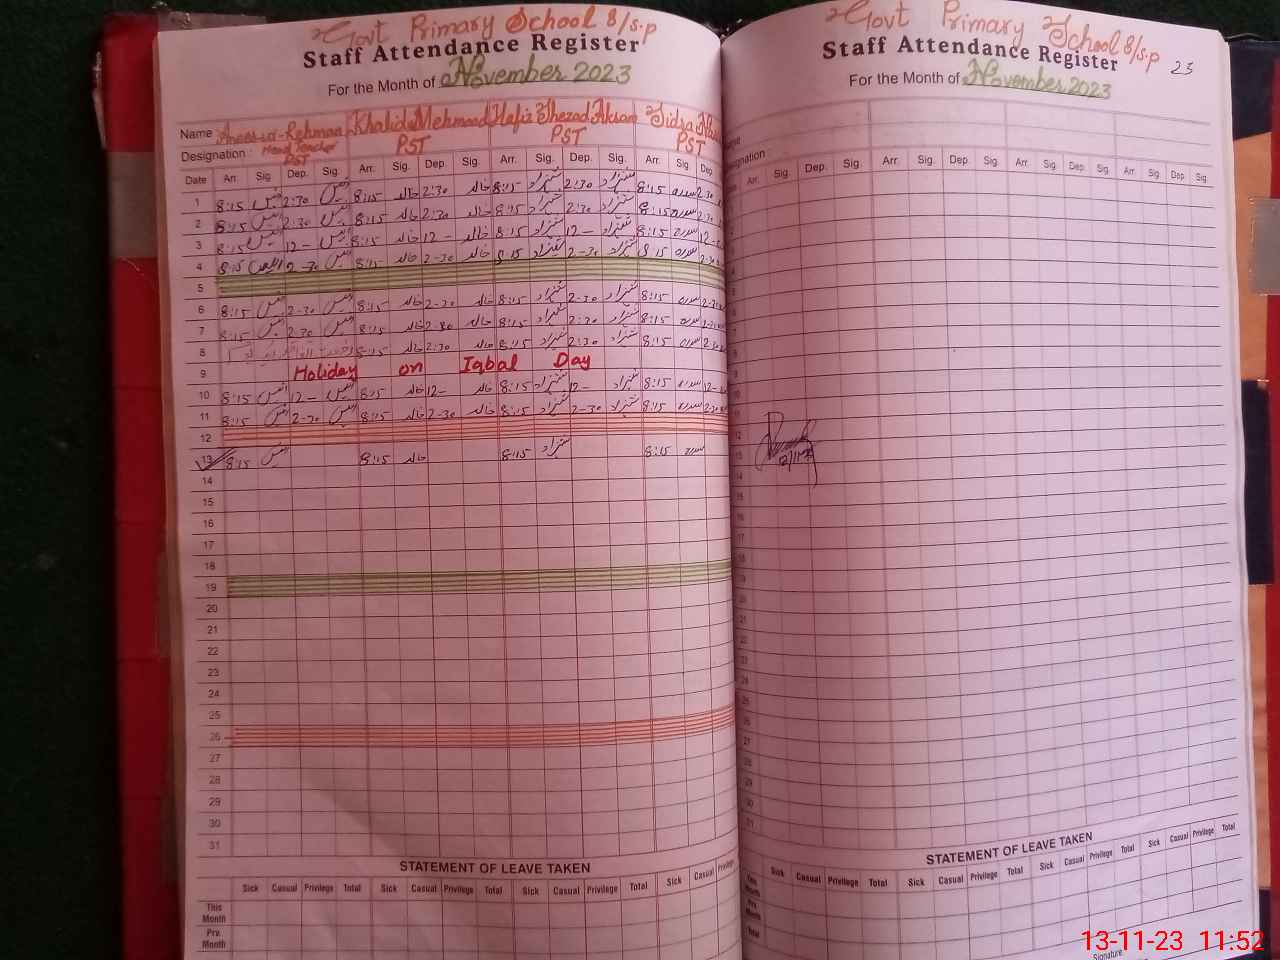 Govt Primary School 8/s.p
Staff Attendance Register
For the Month of November 2023
Name Anees-ur-Rehman Khalid Mehmood Hafiz Shezad Akram Sidra
Designation: Head Teacher PST PST PST PST
Date Arr. Sig. Dep. Sig. Arr. Sig. Dep. Sig. Arr. Sig. Dep. Sig. Arr. Sig. Dep.
1 8:15 انیس 2:30 انیس 8:15 خالد 2:30 خالد 8:15 شہزاد 2:30 شہزاد 8:15 سدرہ 2:30
2 8:15 انیس 2:30 انیس 8:15 خالد 2:30 خالد 8:15 شہزاد 2:30 شہزاد 8:15 سدرہ 2:30
3 8:15 انیس 12- انیس 8:15 خالد 12- خالد 8:15 شہزاد 12- شہزاد 8:15 سدرہ 12-
4 8:15 انیس 2-30 انیس 8:15 خالد 2-30 خالد 8:15 شہزاد 2-30 شہزاد 8:15 سدرہ 2-30
5
6 8:15 انیس 2-30 انیس 8:15 خالد 2-30 خالد 8:15 شہزاد 2-30 شہزاد 8:15 سدرہ 2-30
7 8:15 انیس 2:30 انیس 8:15 خالد 2-30 خالد 8:15 شہزاد 2:30 شہزاد 8:15 سدرہ
8 8:15 خالد 2:30 خالد 8:15 شہزاد 2:30 شہزاد 8:15 سدرہ
9 Holiday on Iqbal Day
10 8:15 انیس 12- انیس 8:15 خالد 12- خالد 8:15 شہزاد 12- شہزاد 8:15 سدرہ 12-
11 8:15 انیس 2-30 انیس 8:15 خالد 2-30 خالد 8:15 شہزاد 2-30 شہزاد 8:15 سدرہ 2-30
12
13 8:15 انیس 8:15 خالد 8:15 شہزاد 8:15 سدرہ
14
15
16
17
18
19
20
21
22
23
24
25
26
27
28
29
30
31
STATEMENT OF LEAVE TAKEN
Sick Casual Privilege Total Sick Casual Privilege Total Sick Casual Privilege Total Sick Casual Privilege
This Month
Prv. Month
Govt Primary School 8/s.p
Staff Attendance Register 23
For the Month of November 2023
Arr. Sig. Dep. Sig. Arr. Sig. Dep. Sig. Arr. Sig. Dep. Sig. Arr. Sig. Dep. Sig.
STATEMENT OF LEAVE TAKEN
Sick Casual Privilege Total Sick Casual Privilege Total Sick Casual Privilege Total Sick Casual Privilege Total
Prv. Month
Total
Signature
13-11-23 11:52